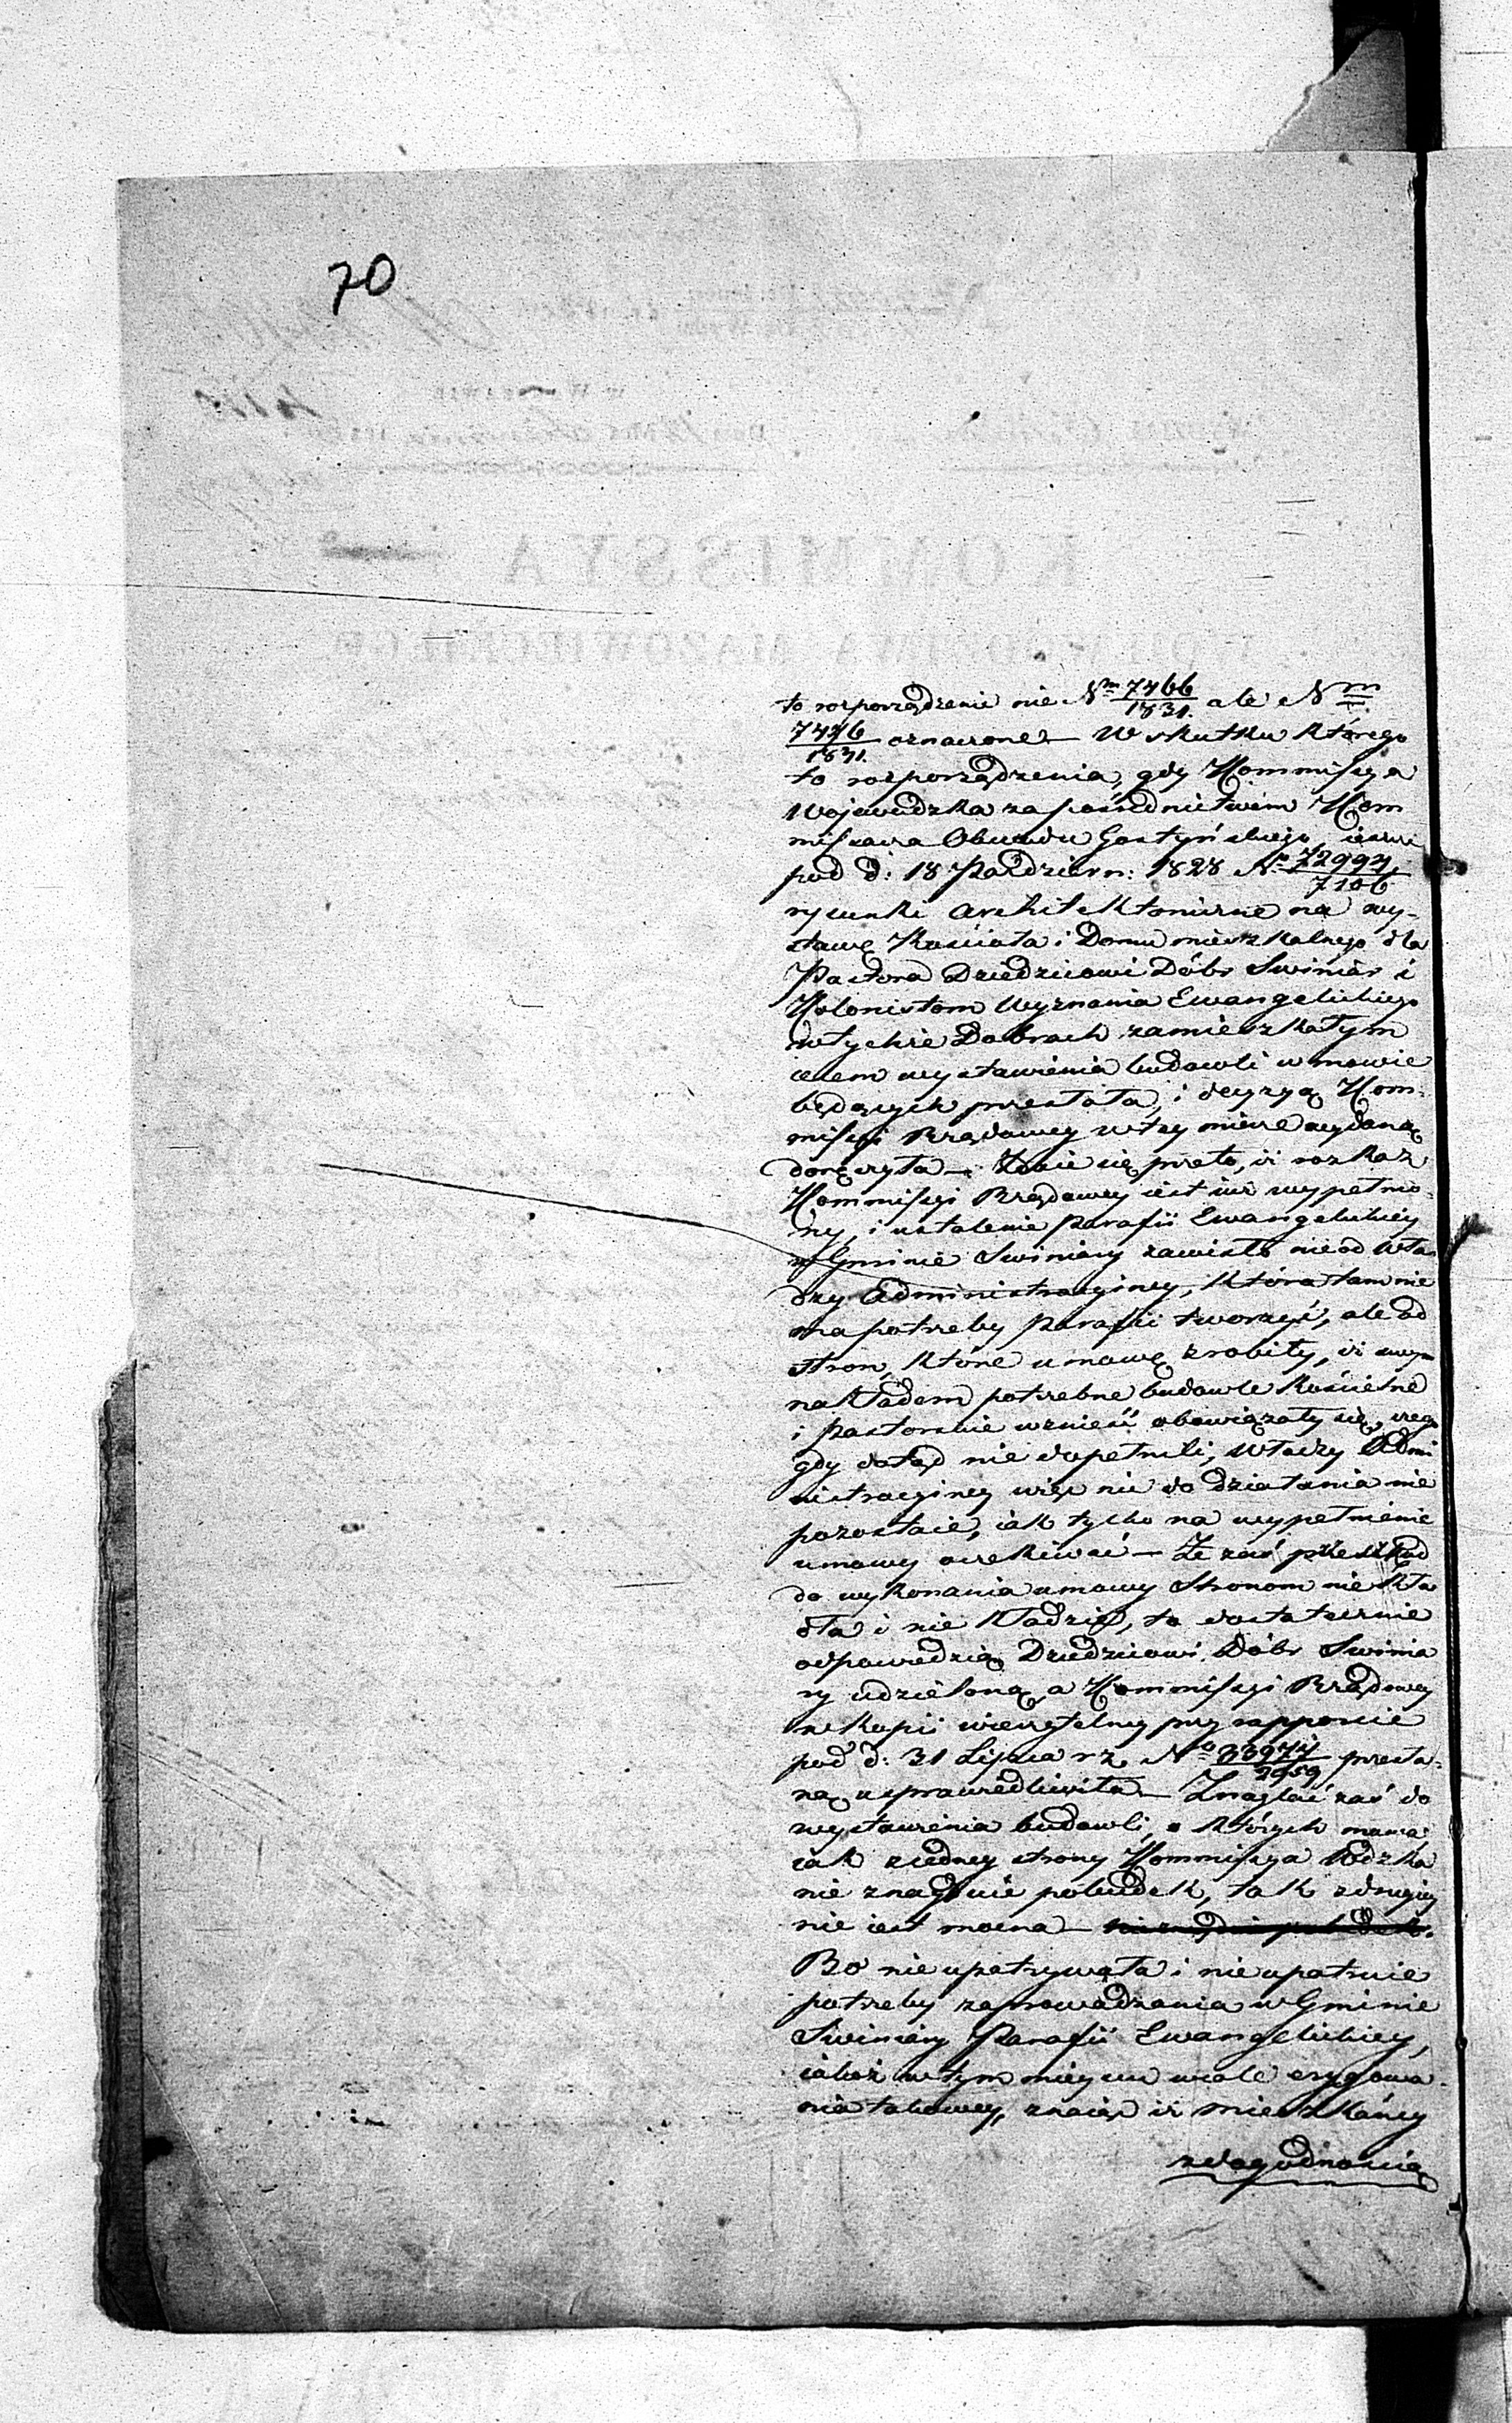 70
to rozporządzenie nie Nm 7466/1831. ale Nm
7446/1831. oznaczone – W skutku którego
to rozporządzenia, gdy Kommissya
Wojewódzka za pośrednictwem Kom
missarza Obwodu Gostyńskiego ieszcze
pod d: 18 Październ: 1828 No 72994/7106
rysunki architektoniczne na wy-
stawę Kościoła i Domu mieszkalnego dla
Pastora Dziedzicowi Dóbr Swiniar i
Kolonistom Wyznania Ewangelickiego
w tychże Dobrach zamieszkałym
celem wystawienia budowli w mowie
będących przesłała, i decyzyą Kom-
missyi Rządowey w tey mierze wydaną
doręczyła – Zdaie się przeto, iż rozkaz
Kommissyi Rządowey iest iuż wypełnio-
ny, i ustalenie Parafii Ewangelickiey
w Gminie Swiniary zawisło nie od Wła
dzy Administracyiney, która tam nie
ma potrzeby Parafii tworzyć, ale od
stron, które umowę zrobiły, iż swym
nakładem potrzebne budowle Kościelne
i Pastorskie wznieść obowiązały się, czego
gdy dotąd nie dopełnili, Władzy Admi
nistracyiney więc nic do działania nie
pozostaie, iak tylko na wypełnienie
umowy oczekiwać – Że zaś przeszkod
do wykonania umowy Stronom nie kła
dła i nie kładzie, to dostatecznie
odpowiedzią Dziedzicowi Dóbr Swinia
ry udzieloną, a Kommissyi Rządowey
w kopii wierzytelney przy rapporcie
pod d: 31 Lipca r z. No 33974/2959 przesła-
ną usprawiedliwiła – Znaglać zaś do
wystawienia budowli, o których mowa,
iak z iedney strony Kommissya Wdzka
nie znayduie pobudek, tak z drugiey
nie iest mocna –
Bo nie upatrywała i nie upatruie
potrzeby zaprowadzania w Gminie
Swiniary Parafii Ewangelickiey,
iakoż w tym mieyscu wcale erygowa-
nia takowey, znaiąc iż mieszkańcy
z dogodnością